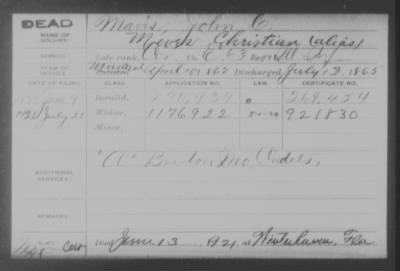 DEAD
NAME OF SOLDIER:
Mavis, John C.
Meves Christian (alias)
SERVICE:
Late rank, Co. C, 63 N.Y. Inf
TERM OF SERVICE:
Enlisted April 10 1862 Discharged July 12, 1865
DATE OF FILING. CLASS. APPLICATION NO. LAW. CERTIFICATE NO.
Invalid, 296,939 269,454
1921 July 21 Widow, 1176922 921830
Minor,
ADDITIONAL SERVICES:
"A" Benton Mo. Cadets,
REMARKS:
Died June 13, 1921, at Winterhaven, Fla